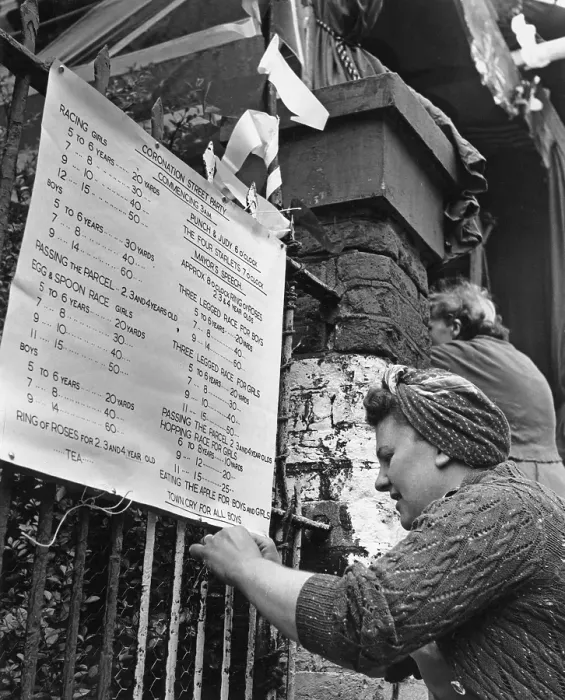 CORONATION STREET PARTY
COMMENCING 3AM.
RACING GIRLS
5 TO 6 YEARS.....20 YARDS
7 .. 8 ........... 30 ..
9 .. 10 .......... 40 ..
12 .. 15 .......... 50 ..
BOYS
5 TO 6 YEARS.....30 YARDS
7 .. 8 ........... 40 ..
9 .. 14 .......... 60 ..
PASSING THE PARCEL..2, 3 AND 4 YEARS OLD
EGG & SPOON RACE GIRLS
5 TO 6 YEARS.....20 YARDS
7 .. 8 ........... 30 ..
9 .. 10 .......... 40 ..
11 .. 15 .......... 50 ..
BOYS
5 TO 6 YEARS.....20 YARDS
7 .. 8 ........... 40 ..
9 .. 14 .......... 60 ..
RING OF ROSES FOR 2, 3 AND 4 YEAR OLD
.....TEA.....
PUNCH & JUDY 6 O'CLOCK
THE FOUR STARLETS 7 O'CLOCK
MAYOR'S SPEECH.
APPROX 8 O'CLOCK RING OF ROSES
2 3 & 4 YEAR OLDS
THREE LEGGED RACE FOR BOYS
5 TO 6 YEARS...20 YARDS
7 .. 8 ......... 40 ..
9 .. 14 ........ 60 ..
THREE LEGGED RACE FOR GIRLS
5 TO 6 YEARS..20 YARDS
7 .. 8 ......... 30 ..
9 .. 10 ........ 40 ..
11 .. 15 ........ 50 ..
PASSING THE PARCEL 2 3 AND 4 YEAR OLDS
HOPPING RACE FOR GIRLS
6 TO 8 YEARS...10 YARDS
9 .. 12 ........ 20 ..
11 .. 15 ........ 25 ..
EATING THE APPLE FOR BOYS AND GIRLS
TOWN CRY FOR ALL BOYS